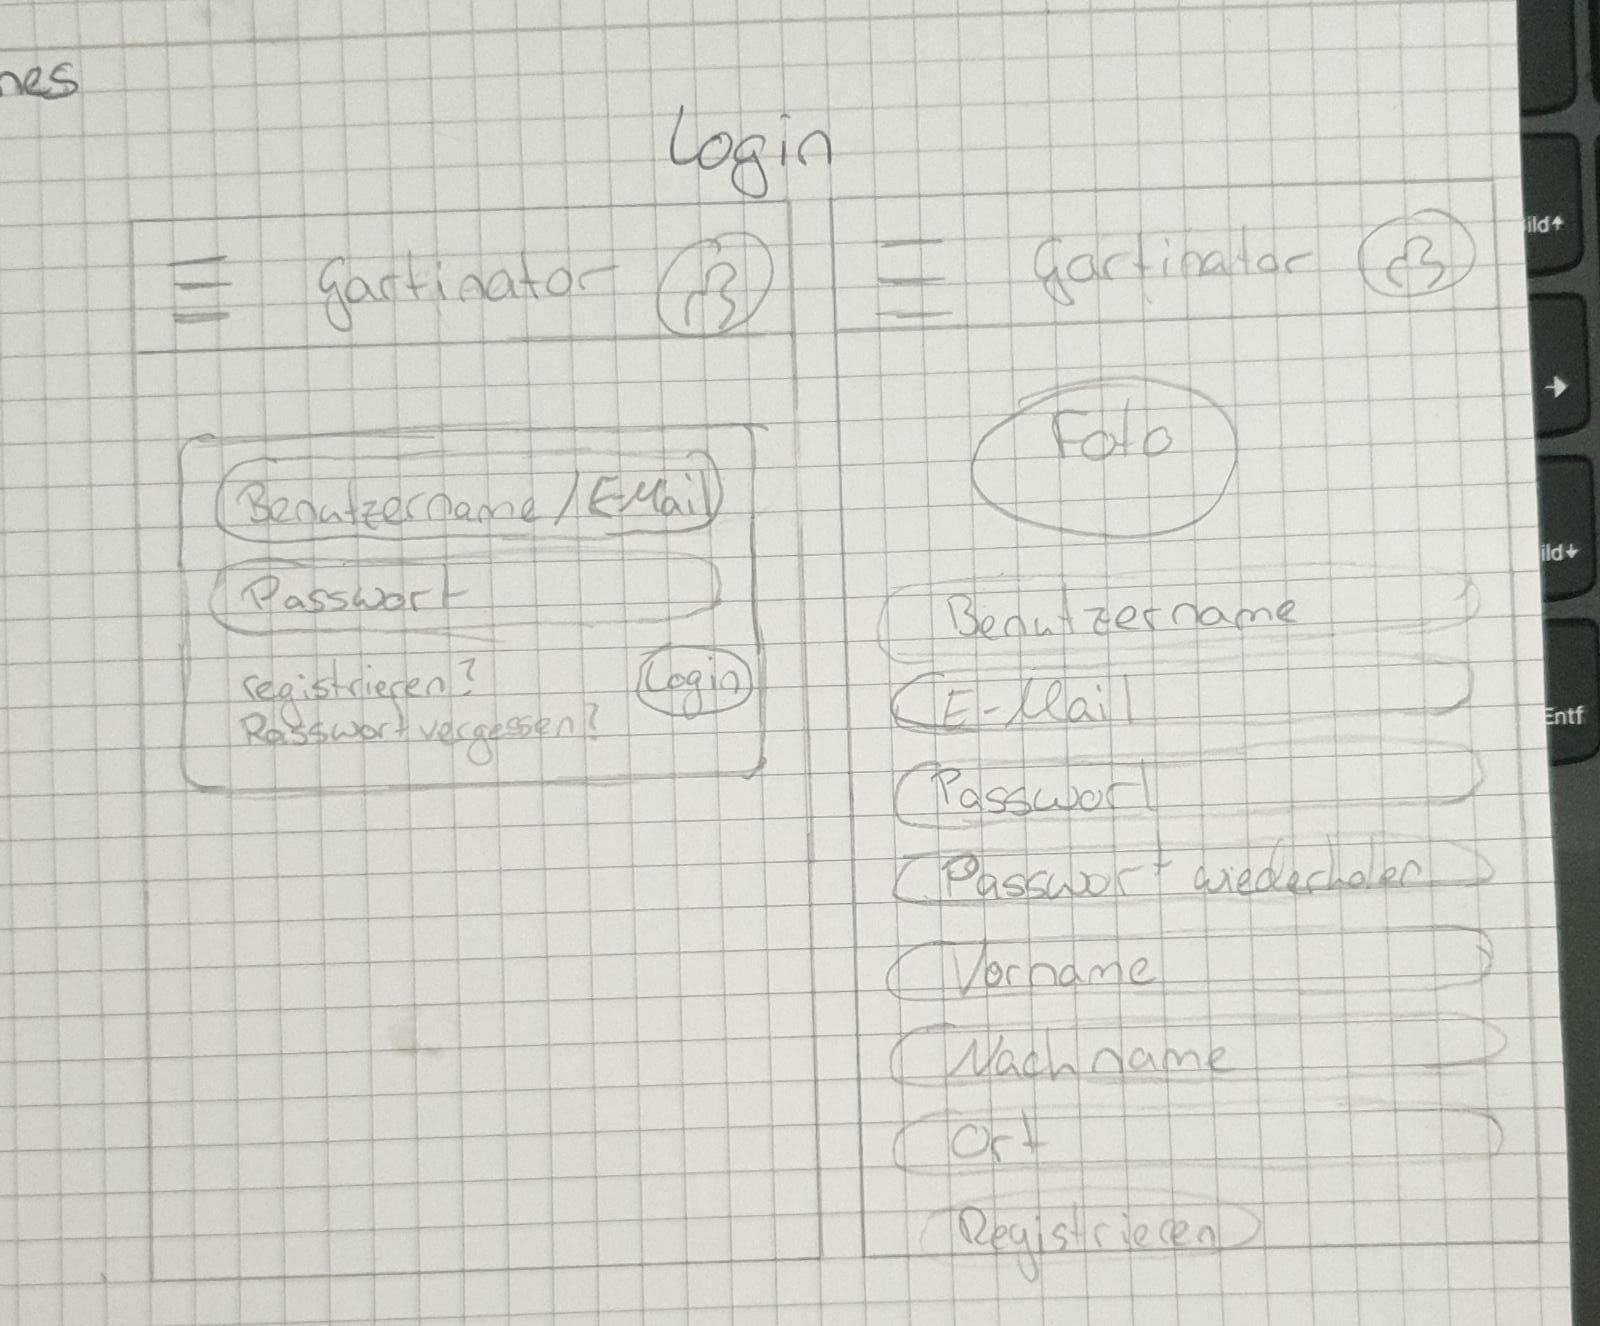 nes
Login
gartinator
Benutzername / E-Mail
Passwort
registrieren?
Login
Passwort vergessen?
gartinator
Foto
Benutzername
E-Mail
Passwort
Passwort wiederholen
Vorname
Nachname
Ort
Registrieren
ild↑
→
ild↓
Entf